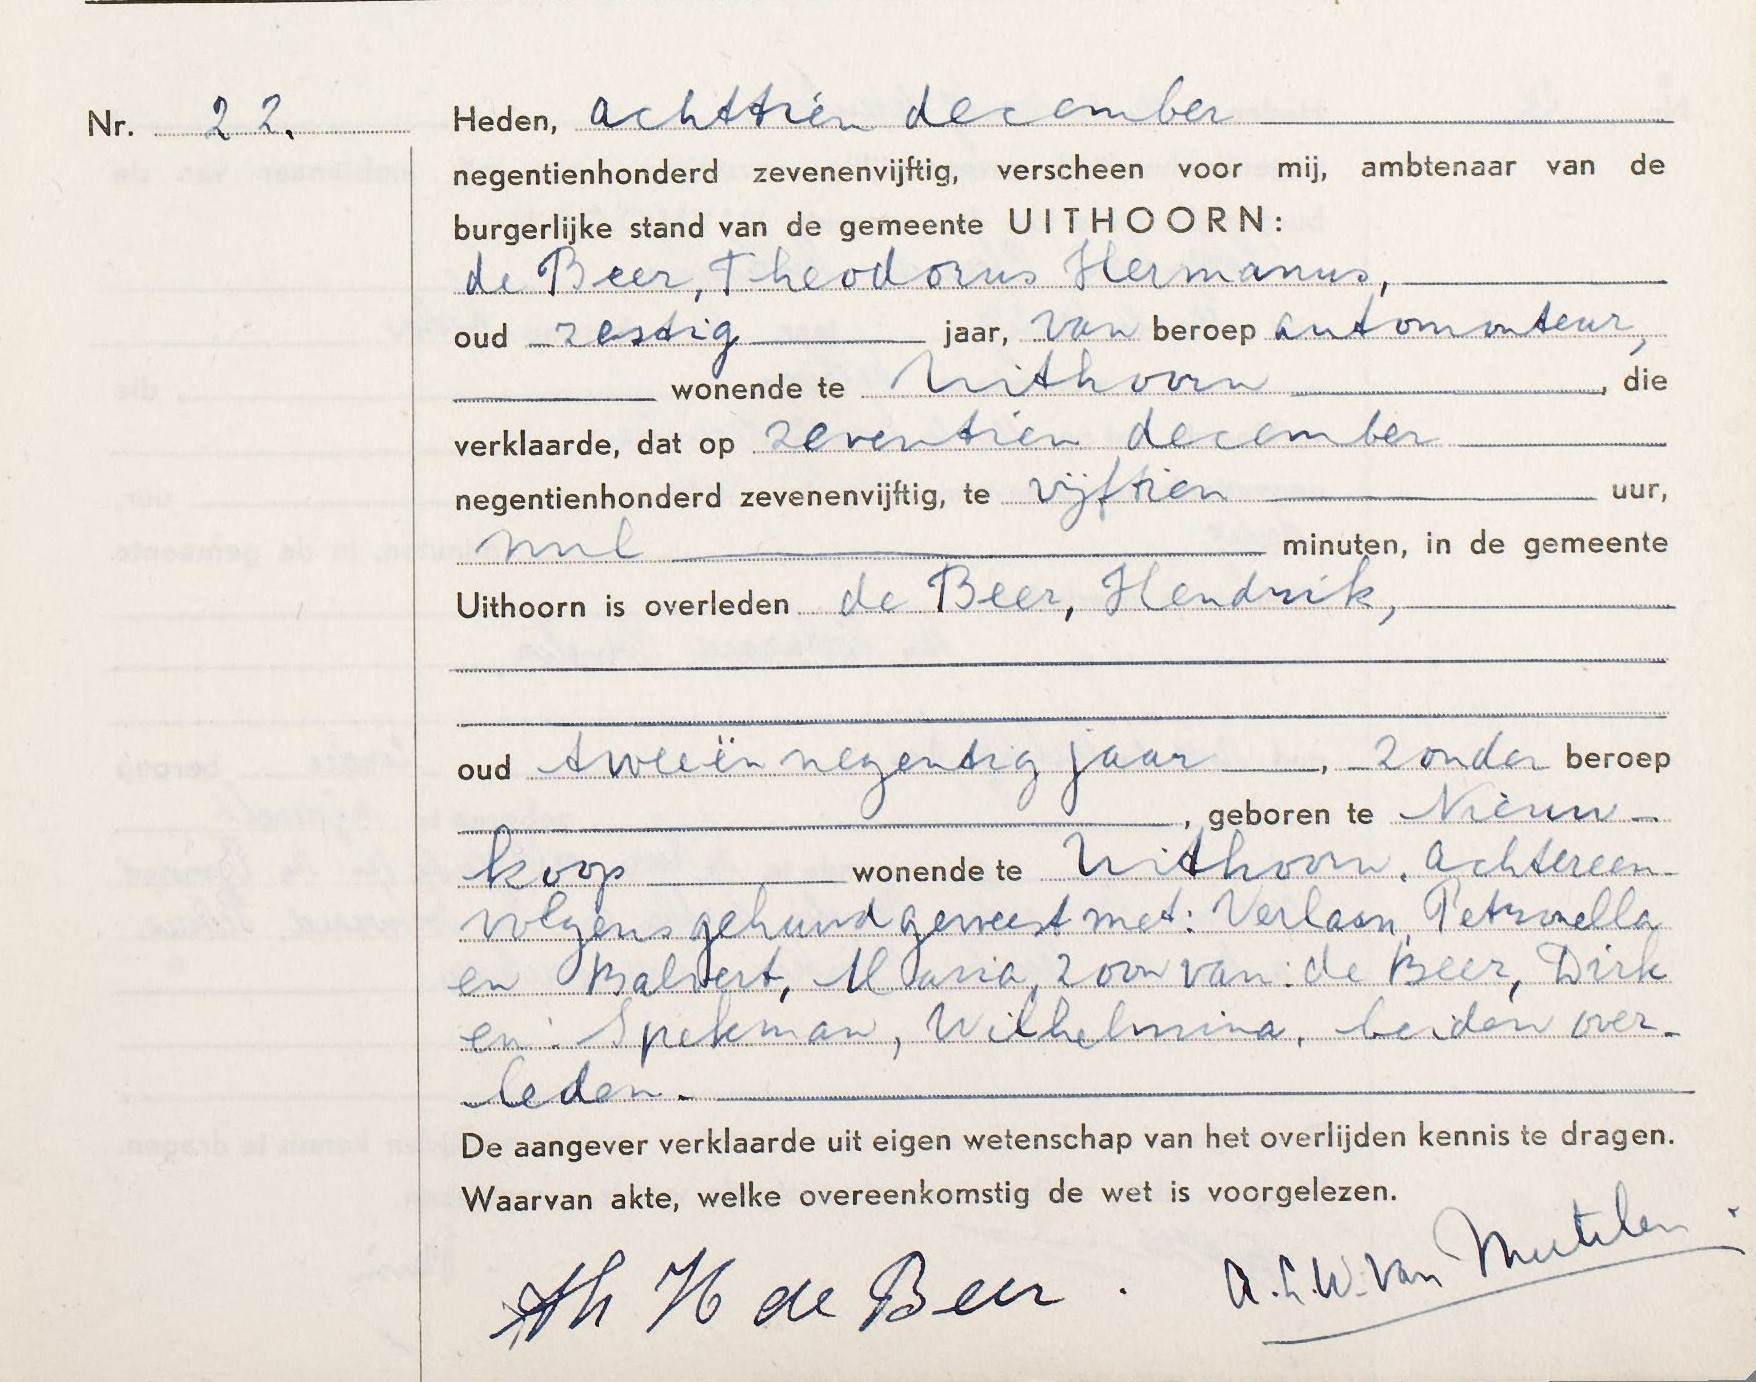 Nr. 22.
Heden, achttien december
negentienhonderd zevenenvijftig, verscheen voor mij, ambtenaar van de
burgerlijke stand van de gemeente UITHOORN:
de Beer, Theodorus Hermanus,
oud zestig jaar, van beroep automonteur,
wonende te Uithoorn, die
verklaarde, dat op zeventien december
negentienhonderd zevenenvijftig, te vijftien uur,
nul minuten, in de gemeente
Uithoorn is overleden de Beer, Hendrik,
oud tweeënnegentig jaar, zonder beroep
, geboren te Nieuw-
koop wonende te Uithoorn. achtereen-
volgens gehuwd geweest met: Verlaan, Petronella
en Balvert, Maria, zoon van: de Beer, Dirk
en: Spekman, Wilhelmina, beiden over-
leden.
De aangever verklaarde uit eigen wetenschap van het overlijden kennis te dragen.
Waarvan akte, welke overeenkomstig de wet is voorgelezen.
Th H de Beer. van